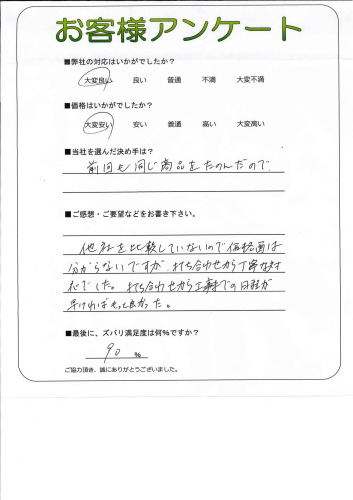 お客様アンケート
■弊社の対応はいかがでしたか？
大変良い 良い 普通 不満 大変不満
■価格はいかがでしたか？
大変安い 安い 普通 高い 大変高い
■当社を選んだ決め手は？
前回も同じ商品をたのんだので
■ご感想・ご要望などをお書き下さい。
他社を比較していないので価格面は
分からないですが、打ち合わせから丁寧な対
応でした。打ち合わせから工事までの日程が
早ければもっと良かった。
■最後に、ズバリ満足度は何%ですか？
90 %
ご協力頂き、誠にありがとうございました。